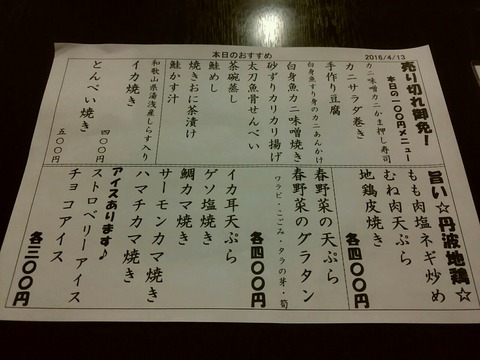 本日のおすすめ
2016/4/13
売り切れ御免！
本日の一〇〇円メニュー
カニ味噌カニかま押し寿司
カニサラダ巻き
手作り豆腐
白身魚すり身のカニあんかけ
白身魚カニ味噌焼き
砂ずりカリカリ揚げ
太刀魚骨せんべい
茶碗蒸し
鮭めし
焼きおに茶漬け
鮭かす汁
和歌山県湯浅産しらす入り
イカ焼き
四〇〇円
とんぺい焼き
五〇〇円
旨い☆丹波地鶏☆
もも肉塩ネギ炒め
むね肉天ぷら
地鶏皮焼き
各四〇〇円
春野菜の天ぷら
春野菜のグラタン
ワラビ・こごみ・タラの芽・筍
各四〇〇円
イカ耳天ぷら
ゲソ塩焼き
鯛カマ焼き
サーモンカマ焼き
ハマチカマ焼き
アイスあります♪
ストロベリーアイス
チョコアイス
各三〇〇円